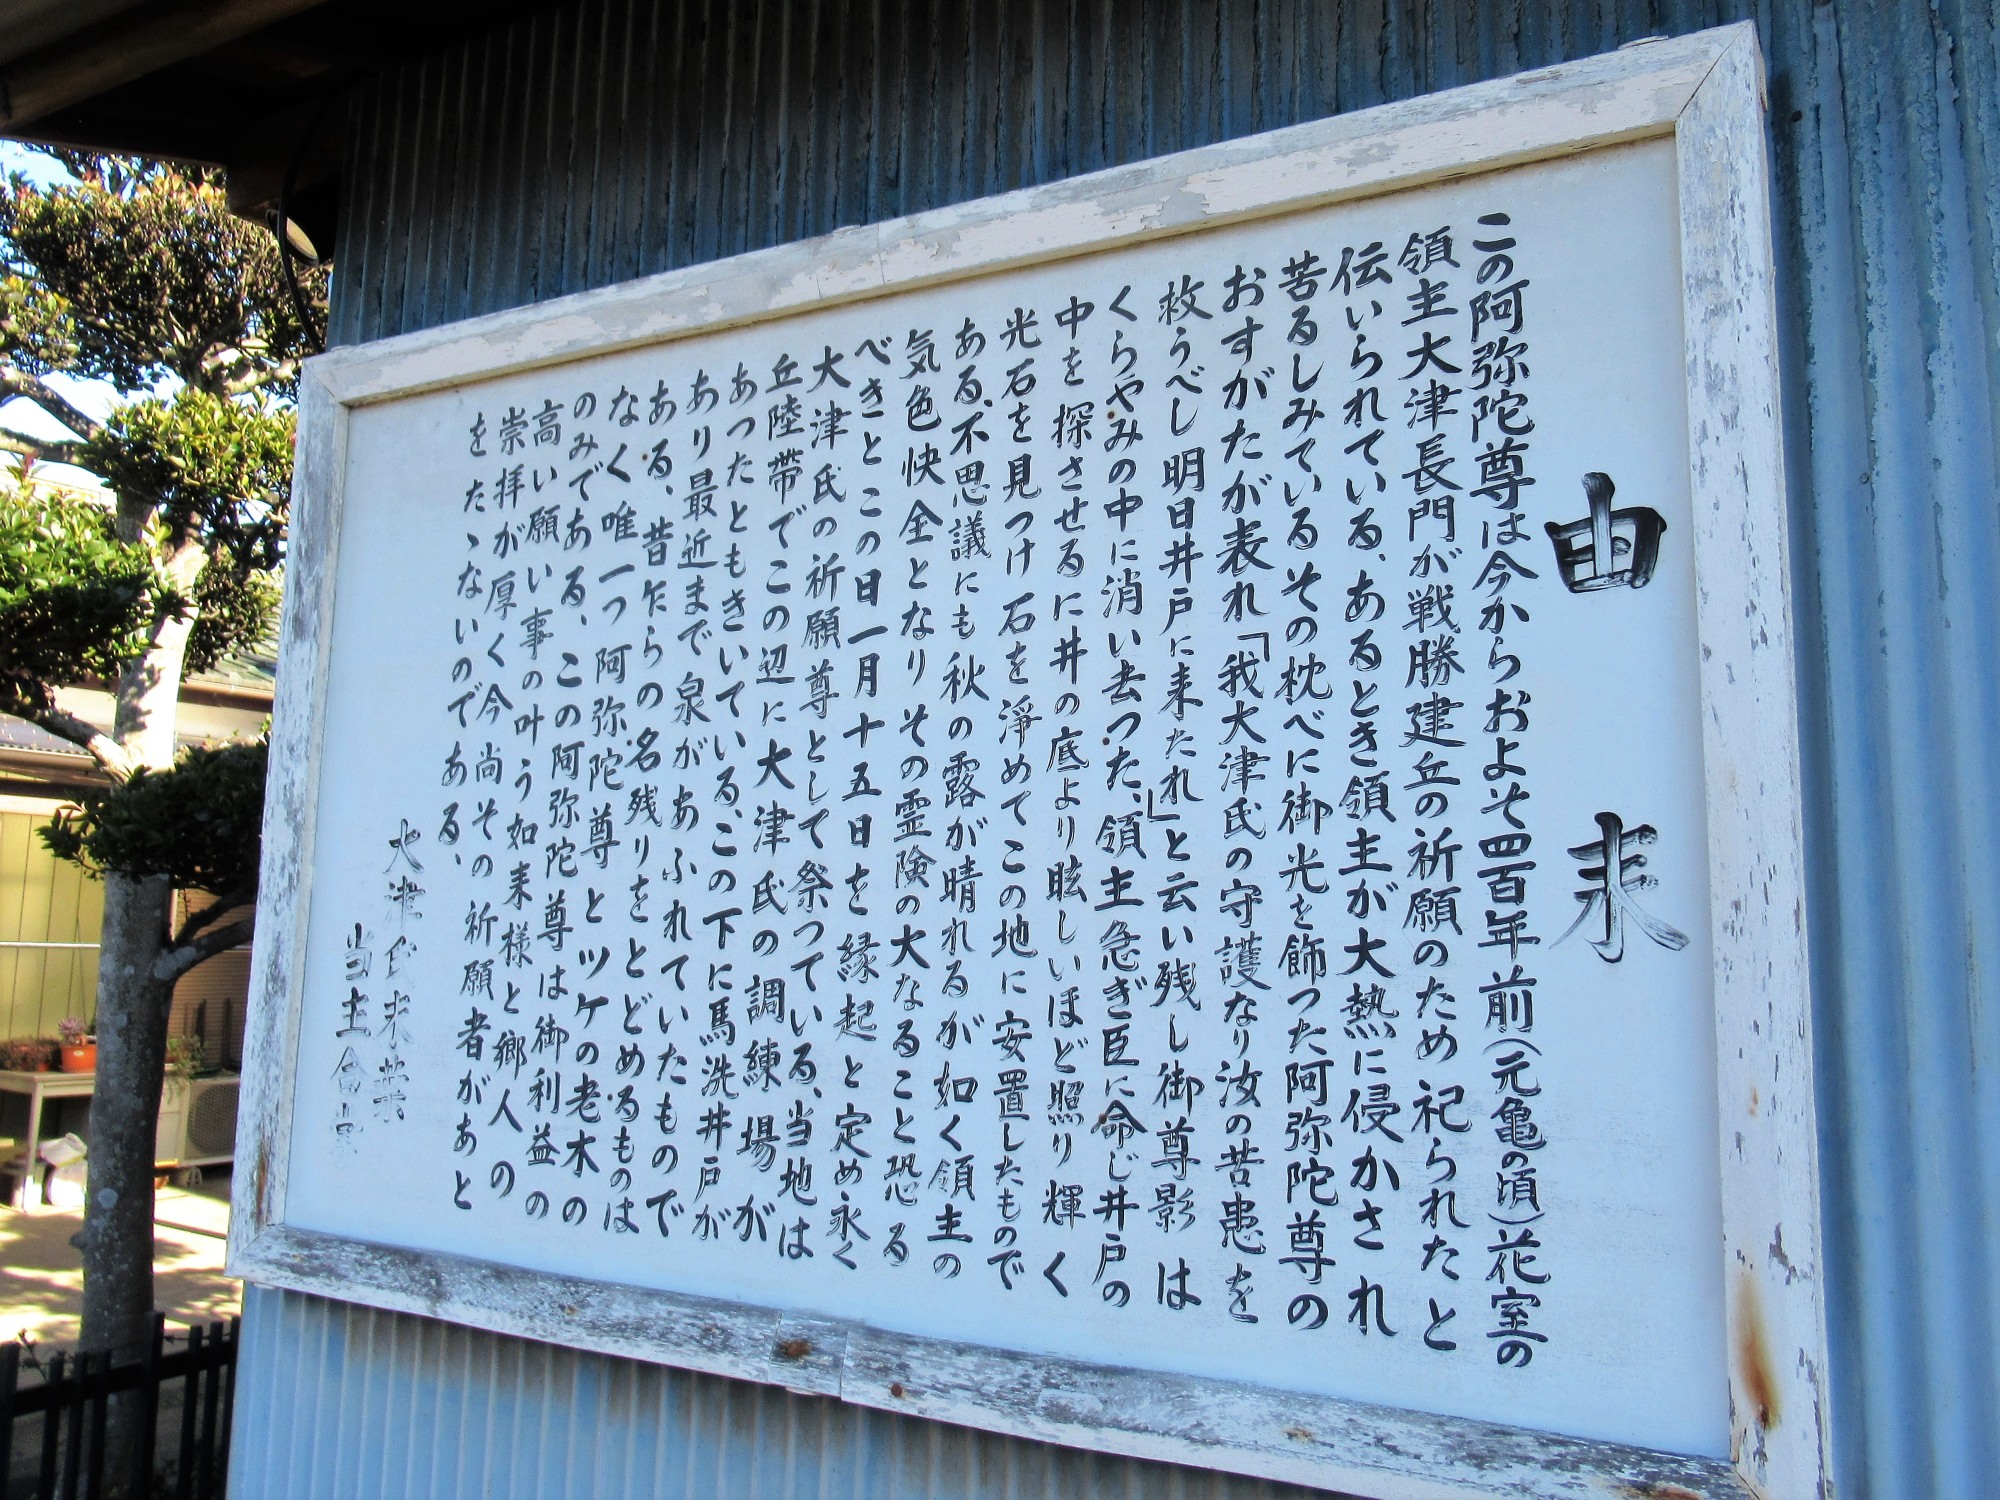 由来
この阿弥陀尊は今からおよそ四百年前(元亀の頃)花室の
領主大津長門が戦勝建丘の祈願のため祀られたと
伝いられている、あるとき領主が大熱に侵かされ
苦るしみているその枕べに御光を飾った阿弥陀尊の
おすがたが表れ「我大津氏の守護なり汝の苦患を
救うべし明日井戸に来たれ」と云い残し御尊影は
くらやみの中に消い去った、領主急ぎ臣に命じ井戸の
中を探させるに井の底より眩しいほど照り輝く
光石を見つけ石を淨めてこの地に安置したもので
ある、不思議にも秋の露が晴れるが如く領主の
気色快全となりその霊険の大なること恐る
べきとこの日一月十五日を縁起と定め永く
大津氏の祈願尊として祭つている、当地は
丘陸帯でこの辺に大津氏の調練場が
あつたともきいている、この下に馬洗井戸が
あり最近まで泉があふれていたもので
ある、昔乍らの名残りをとどめるものは
なく唯一つ阿弥陀尊とツケの老木の
のみである、この阿弥陀尊は御利益の
高い願い事の叶う如来様と郷人の
崇拝が厚く今尚その祈願者があと
をたゝないのである、
大津氏末葉
当主